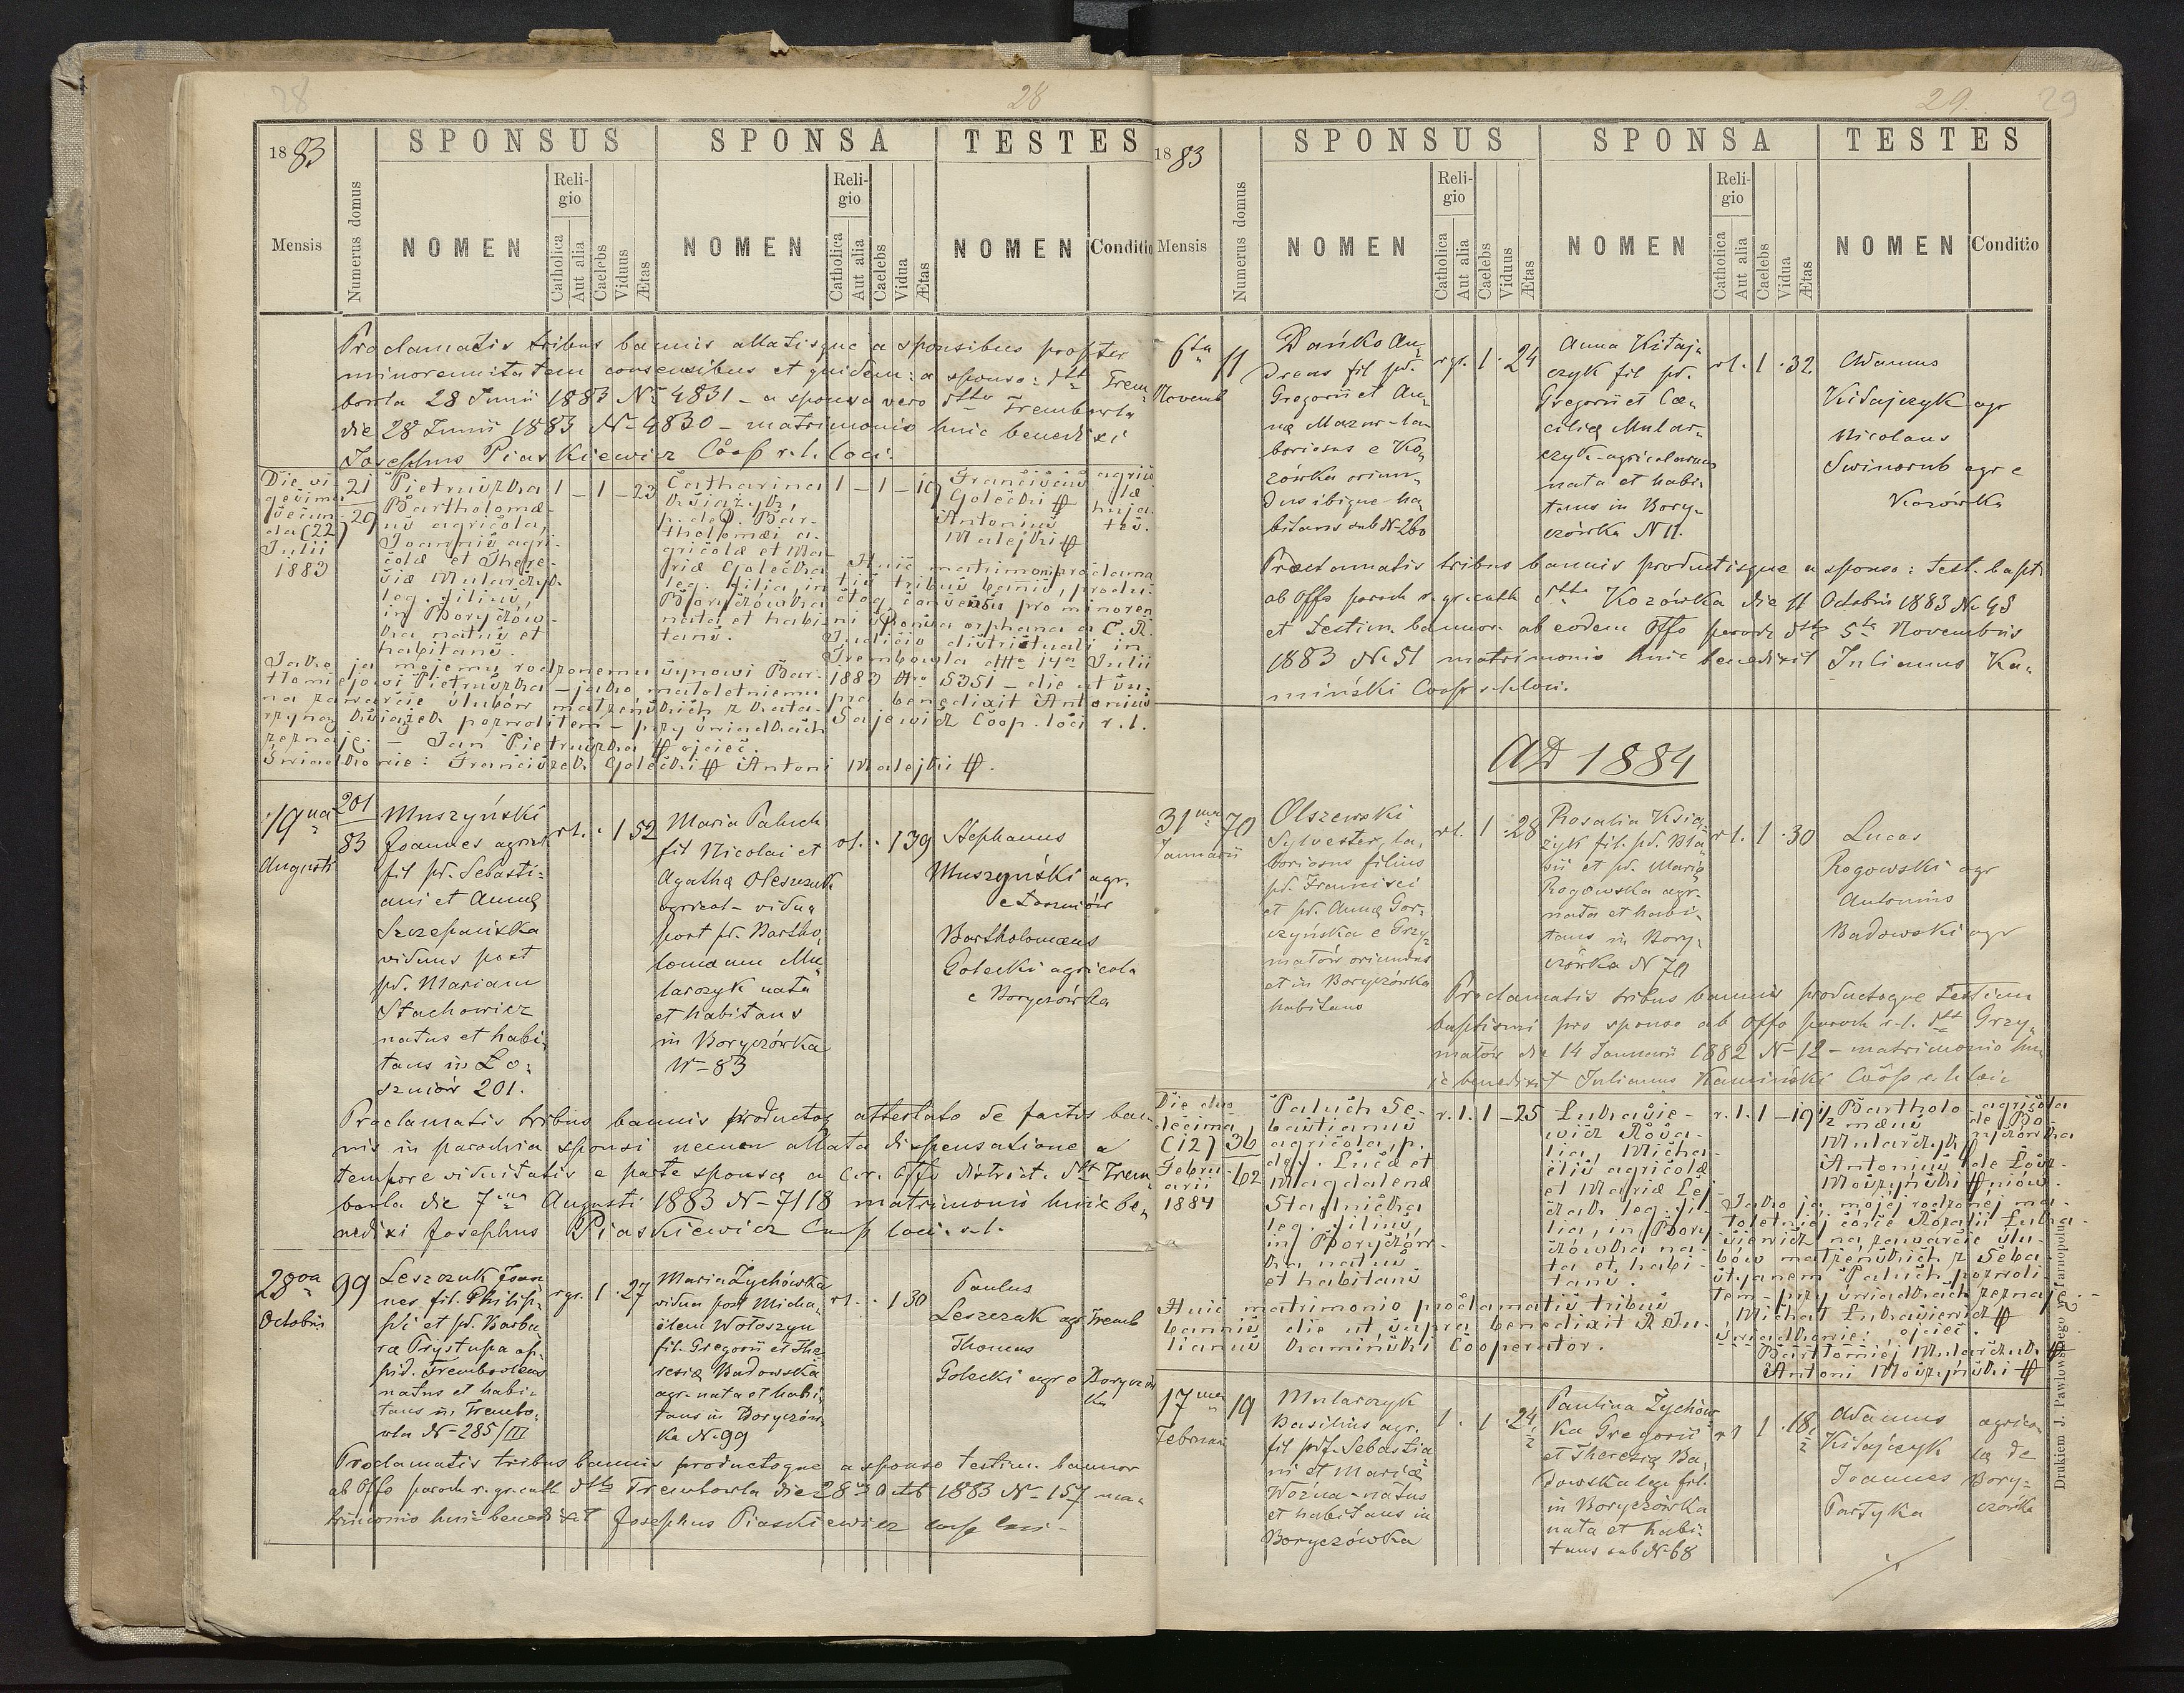 28
28
1883
SPONSUS
SPONSA
TESTES
Mensis
Numerus domus
NOMEN
Religio
Catholica
Aut alia
Caelebs
Viduus
Ætas
NOMEN
Religio
Catholica
Aut alia
Caelebs
Vidua
Ætas
NOMEN
Conditio
Proclamatis tribus bannis allatisque a sponsibus propter
minorennitatem consensibus et quidem: a sponso: dtt Trem-
bowla 28 Junii 1883 No 4831 – a sponsa vero dtto Trembowla
die 28 Junii 1883 No 4830 – matrimonio huic benedixi
Josephus Piaskiewicz Coop r. l. loci.
Die vi-
gesima
secun-
da (22)
Julii
1883
21
29
Pietruszka
Bartholomæ-
us agricola,
Joannis agri-
colæ et There-
siæ Mularczyk
leg. filius,
in Boryczów-
ka natus et
habitans.
1 – 1 – 23
Catharina
Książek,
p. def. Bar-
tholomæi a-
gricolæ et Ma-
riæ Golecka
leg. filia, in
Boryczówka
nata et habi-
tans.
1 – 1 – 19
Franciscus
Golecki #
Antonius
Malejki #
agrico
læ
huja-
tes.
Huic matrimonio proclama-
tis tribus bannis, produ-
ctoq consensu pro minoren
ni sponsa orphana a C. R.
Judicio districtuali in
Trembowla dtto 14a Julii
1883 Nro 5351 – die ut su-
pra benedixit Antonius
Sajewicz Coop. loci r. l.
Jako ja mojemu rodzonemu synowi Bar-
tłomiejowi Pietruszka – jako małoletniemu
na zawarcie ślubów małżeńskich z Kata-
rzyną Książek pozwoliłem – przy świadkach
zeznaję. – Jan Pietruszka # ojciec.
Świadkowie: Franciszek Golecki # Antoni Malejki #.
19na
Augusti
201
83
Muszyński
Joannes agricol
fil pd. Sebasti-
ani et Annæ
Szczepańska
viduus post
pd. Mariam
Stachowicz
natus et habi-
tans in Ło-
szniów 201.
rl. . 1 52
Maria Paluch
fil Nicolai et
Agathæ Oleszczuk
agricol – vidua
post pd. Bartho-
lomæum Mu-
larczyk nata
et habitans
in Boryczówka
N– 83
rl. . 1 39
Stephanus
Muszyński agr.
e Łoszniów
Bartholomæus
Golecki agricola
e Boryczówka
Proclamatis tribus bannis productoq attestato de factis ban-
nis in parochia sponsi necnon allata dispensatione a
tempore viduitatis e parte sponsæ a c.r. Offo district. dtt Trem-
bowla die 7ma Augusti 1883 N– 7118 matrimonio huic be-
nedixi Josephus Piaskiewicz Coop loci r. l.
28va
Octobris
99
Leszczuk Joan-
nes fil. Philip-
pi et pd. Barba-
ræ Prystupa op-
pid. Trembowlens
natus et habi-
tans in Trembo-
wla N– 285/III
rgr. 1 . 27
Maria Zychówka
vidua post Micha-
elem Wołoszyn
fil. Gregorii et The-
resiæ Badowska
agr. nata et habi-
tans in Boryczów-
ka N. 99
rl. . 1 30
Paulus
Leszczuk agr Tremb
Thomas
Golecki agr e Boryczów
ka
Proclamatis tribus bannis productoque a sponso testim. bannor
ab Offo paroch r. gr. cath dtto Trembowla die 28va Octob 1883 N– 157 ma-
trimonio huic benedixit Josephus Piaskiewicz coop loci –
29
29
1883
SPONSUS
SPONSA
TESTES
Mensis
Numerus domus
NOMEN
Religio
Catholica
Aut alia
Caelebs
Viduus
Ætas
NOMEN
Religio
Catholica
Aut alia
Caelebs
Vidua
Ætas
NOMEN
Conditio
6ta
Novemb
11
Dańko An-
dreas fil pd.
Gregorii et An-
næ Mazur – la-
boriosus e Ko-
zówka oriun-
dus ibique ha-
bitans sub N– 260
rgr. 1 . 24
Anna Kitaj-
czyk fil pd.
Gregorii et Cæ-
ciliæ Mular-
czyk – agricolarum
nata et habi-
tans in Bory-
czówka N 11.
rl. 1 . 32
Adamus
Kitajczyk agr
Nicolaus
Swinorub agr e
Kozówka
Proclamatis tribus bannis productisque a sponso: test. bapt.
ab Offo paroch r. gr. cath dtto Kozówka die 11 Octobris 1883 No 48
et testim. bannor. ab eodem Offo paroch dtto 5ta Novembris
1883 No 51 matrimonio huic benedixit Julianus Ka-
miński Coop r. l. loci.
AD 1884
31ma
Januarii
70
Olszewski
Sylvester, la-
boriosus filius
pd. Francisci
et pd. Annæ Gor-
czyńska e Grzy-
matów oriundus
et in Boryczówka
habitans
rl. 1 . 28
Rosalia Książ-
żyk fil. pd. Bła-
sii et pd. Mariæ
Rogowska agr.
nata et habi-
tans in Bory-
czówka N 70
rl. 1 . 30
Lucas
Rogowski agr
Antonius
Badowski agr
Proclamatis tribus bannis productoque testim
baptismi pro sponso ab Offo paroch r. l. dtt Grzy-
matów die 14 Januarii 1882 N– 12 – matrimonio hu-
ic benedixit Julianus Kamiński Coop r. l. loci
Die duo
decima
(12)
Febru-
arii
1884
36
62
Paluch Se-
bastianus
agricola, p.
def. Lucæ et
Magdalenæ
Stadnicka
leg. filius,
in Boryczów-
ka natus
et habitans
r. l. 1 – 25
Łukasie-
wicz Rosa-
lia, Micha-
elis agricolæ
et Mariæ Lej-
czak leg. fi-
lia, in Bory-
czówka na-
ta et habi-
tans.
r. l. 1 – 19 ½
Bartholo-
mæus
Mularczyk
Antonius
Moszyński #
agricola
de Bo
ryczówka
de Łosz-
niów.
Jako ja mojej rodzonej ma-
łoletniej córce Rozalii Łuka-
siewicz na zawarcie ślu-
bów małżeńskich z Seba-
styanem Paluch pozwoli-
łem – przy świadkach zeznaję. –
Michał Łukasiewicz #
ojciec.
Świadkowie:
Bartłomiej Mularczyk #
Antoni Moszyński #
Huic matrimonio proclamatis tribus
bannis die ut supra benedixit R. Ju-
lianus Kamiński Cooperator.
17ma
Februarii
19
Mularczyk
Basilius agr.
fil pdf. Sebastia-
ni et Mariæ
Woźna – natus
et habitans in
Boryczówka
1 . 1 . 24 ½
Paulina Zychów-
ka Gregorii
et Theresiæ Ba-
dowska leg. fil.
in Boryczówka
nata et habi-
tans sub N– 68
rl 1 . 18 ½
Adamus
Kitajczyk
Joannes
Partyka
agrico-
læ de
Bory-
czówka
Drukiem J. Pawłowskiego w Tarnopolu.